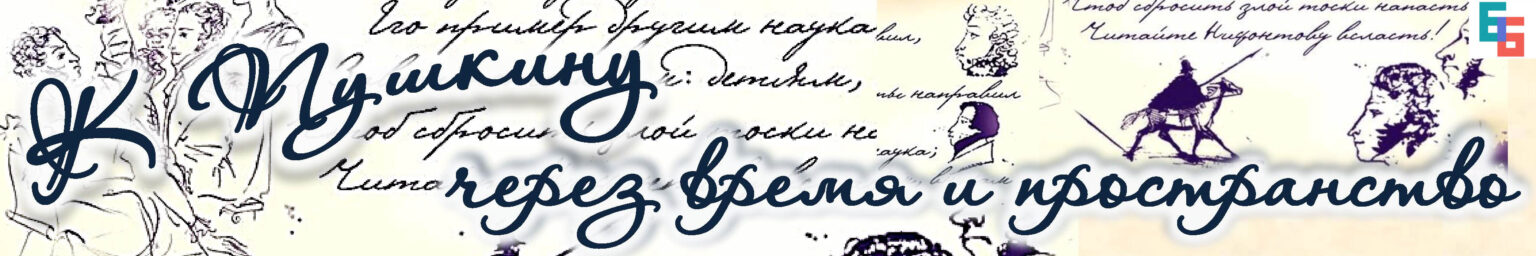 Его пример другим наука
вил,
Чтоб сбросить злой тоски напасть
Читайте Нифонтову всласть!
ББ
К Пушкину
и: детям,
направил
об сбросить злой тоски на
аука;
Чита
через время и пространство